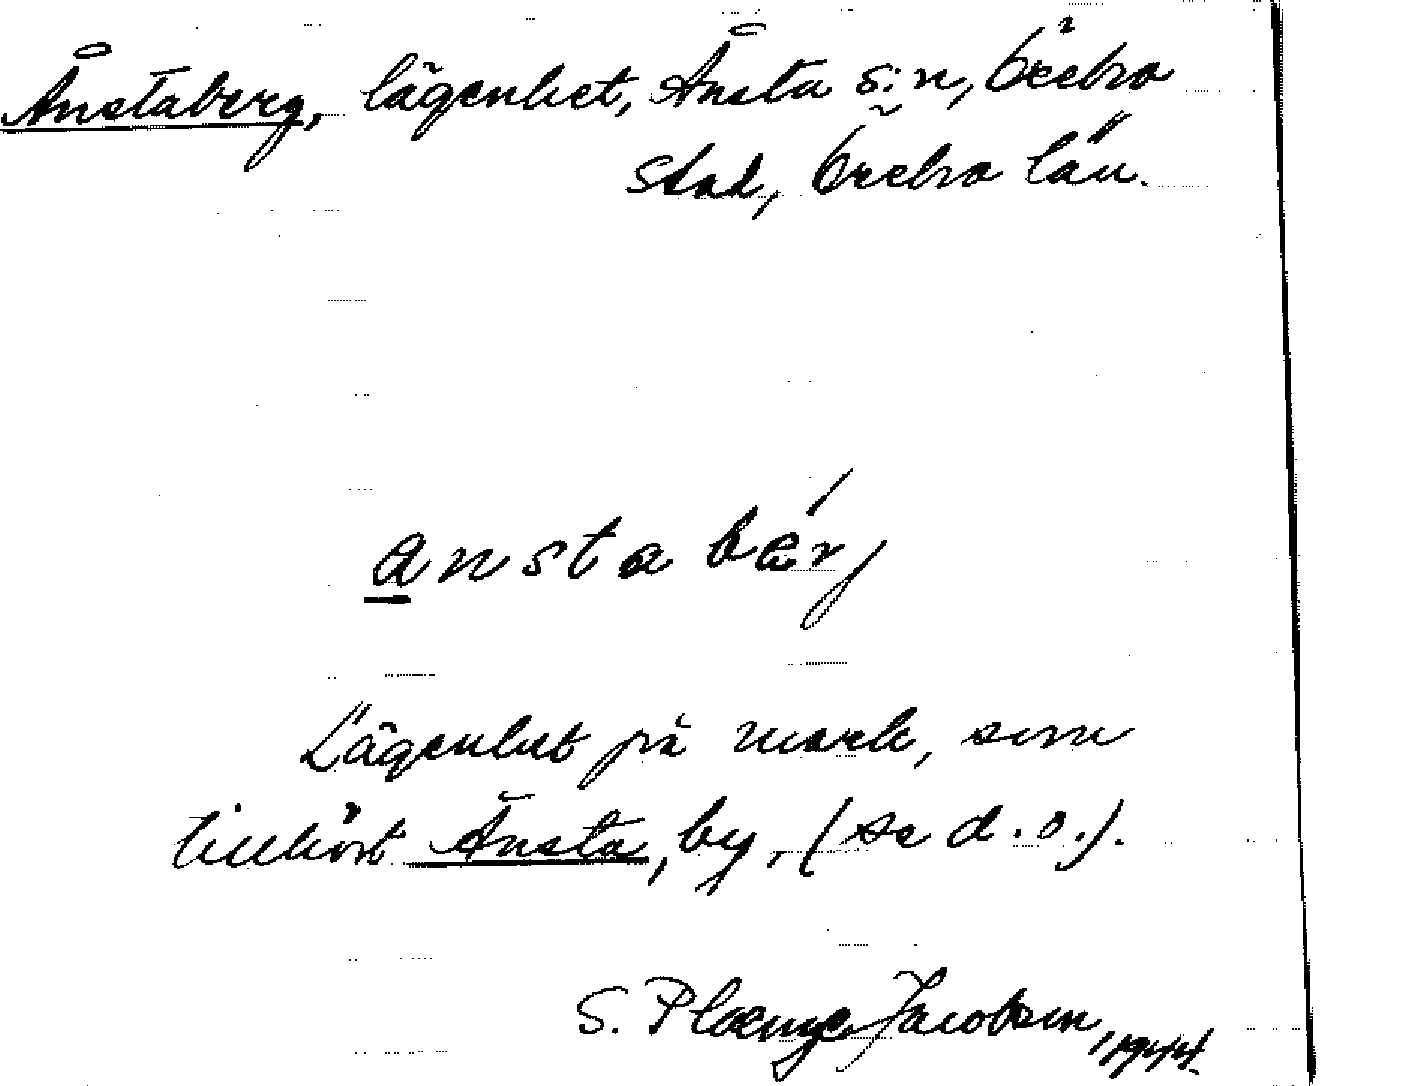 Ånstaberg, lägenhet, Ånsta s:n, Örebro
stad, Örebro län.
anstabärj
Lägenhet på mark, som
tillhört Ånsta, by, (se d.o.).
S. Ploenge Jacobson, 1944.